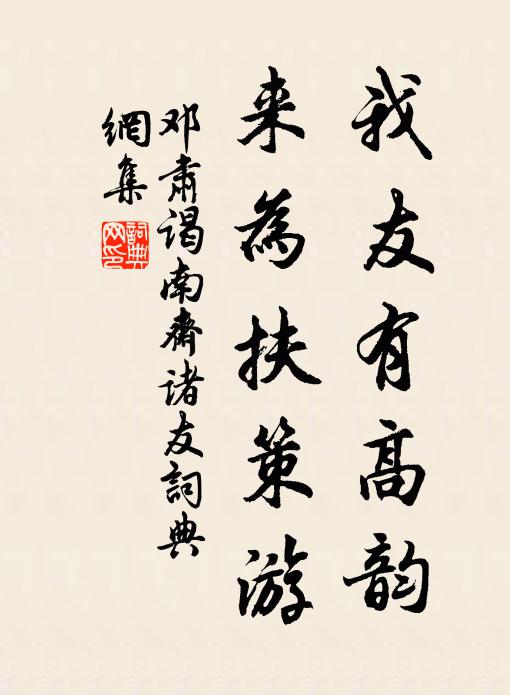 我友有高韵
来為扶策游
邓肃谒南齋诸友詞典
網集
詞典
网印